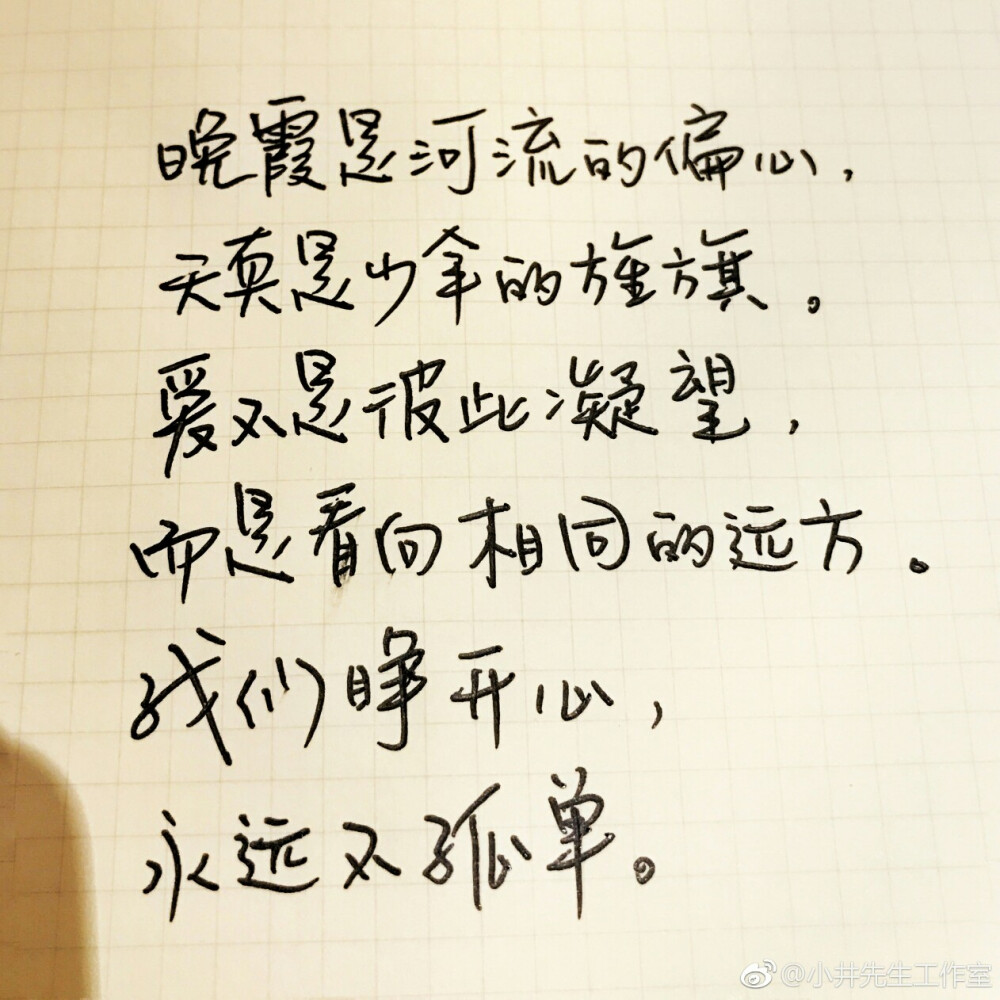 晚霞是河流的偏心,
天真是少年的旌旗。
爱不是彼此凝望,
而是看向相同的远方。
我们睁开心,
永远不孤单。
@小井先生工作室